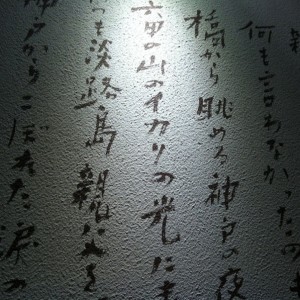 何も言わなかったの
橋から眺める神戸の夜
六甲の山のイカリの光に
つも淡路島 親
神戸からこぼれた涙の